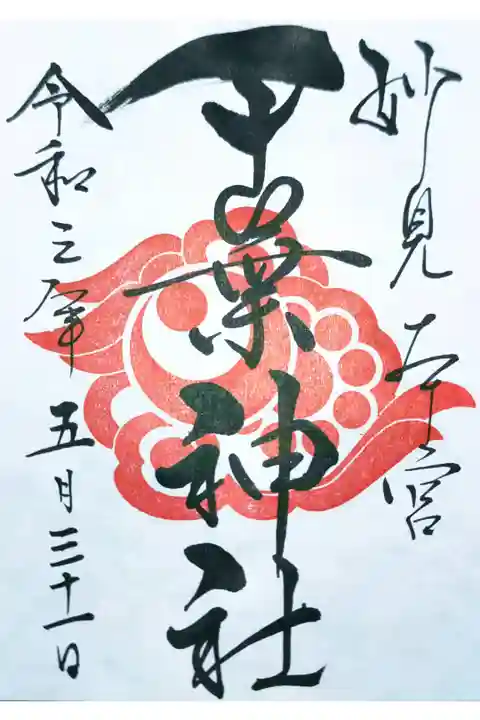 妙見本宮
千葉神社
令和三年五月三十一日